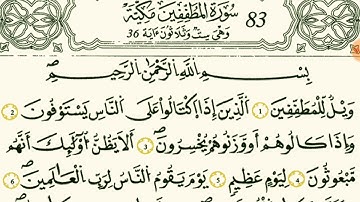 سُورَةُ الْمُطَفِّفِينَ مَكِّيَّةٌ 83
وَهِيَ سِتٌّ وَثَلَاثُونَ ءَايَةً 36
بِسْمِ اللَّهِ الرَّحْمَٰنِ الرَّحِيمِ
وَيْلٌ لِّلْمُطَفِّفِينَ 1 الَّذِينَ إِذَا اكْتَالُوا عَلَى النَّاسِ يَسْتَوْفُونَ 2
وَإِذَا كَالُوهُمْ أَو وَّزَنُوهُمْ يُخْسِرُونَ 3 أَلَا يَظُنُّ أُوْلَٰٓئِكَ أَنَّهُم
مَّبْعُوثُونَ 4 لِيَوْمٍ عَظِيمٍ 5 يَوْمَ يَقُومُ النَّاسُ لِرَبِّ الْعَٰلَمِينَ 6